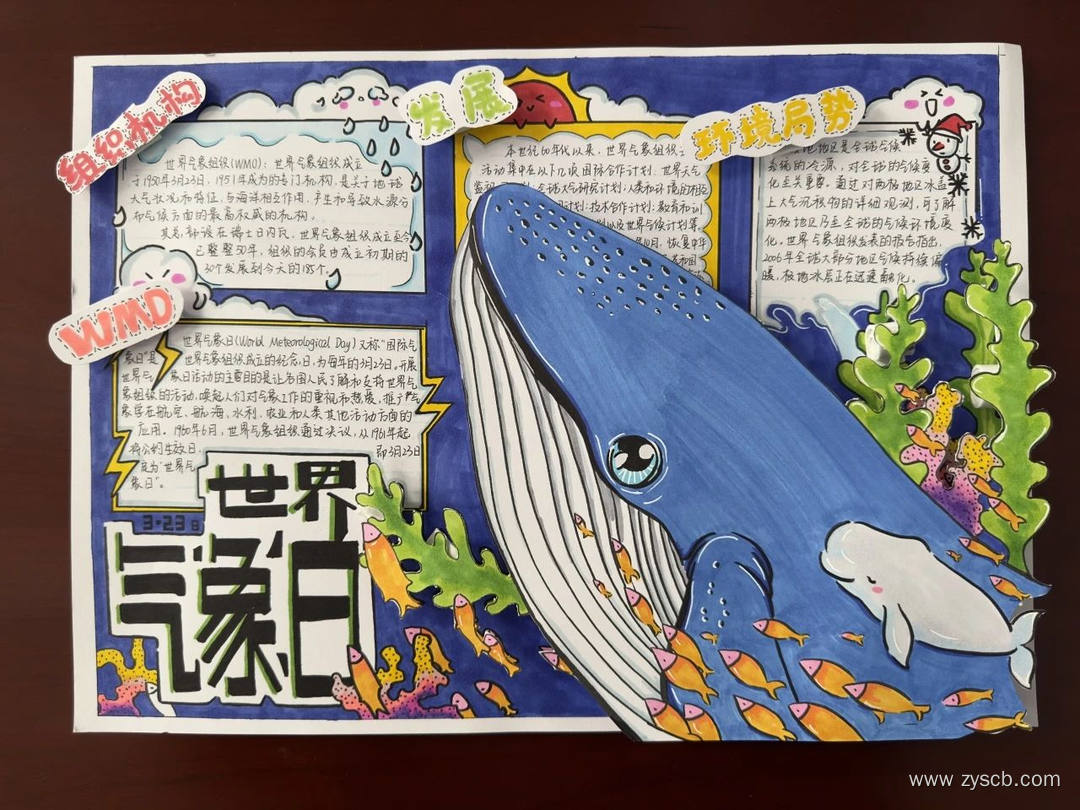 组织机构
发展
环境局势
世界气象组织(WMO):世界气象组织成立
于1950年3月23日,1951年成为的专门机构,是关于地球
大气状况和特征,与海洋相互作用,产生和导致水源分
布气候方面的最高权威的机构。
其总部设在瑞士日内瓦,世界气象组织成立至今
已整整50年,组织的会员由成立初期的
30个发展到今天的185个。
本世纪60年代以来,世界气象组织
活动集中在以下几项国际合作计划:世界天气
全球大气研究计划:人类和环境的相互
计划:技术合作计划:教育和训
以及世界气候计划等
10月,恢复中华
地区是全球气候
系统的冷源,对全球的气候变
化至关重要。通过对两极地区冰盖
上大气沉积物的详细观测,可了解
两极地区乃至全球的气候环境变
化。世界气象组织发表的报告指出,
2006年全球大部分地区气候持续偏
暖,极地冰层正在迅速融化。
WMD
世界气象日(World Meteorological Day)又称"国际气
象日"是世界气象组织成立的纪念日,为每年的3月23日,开展
世界气象日活动的主要目的是让各国人民了解和支持世界气
象组织的活动,唤起人们对气象工作的重视和热爱,推广气
象学在航空、航海、水利、农业和人类其他活动方面的
应用。1960年6月,世界气象组织通过决议,从1961年起
将公约生效日,即3月23日
定为"世界气
象日"。
世界
3·23日
气象日
www.zyscb.com